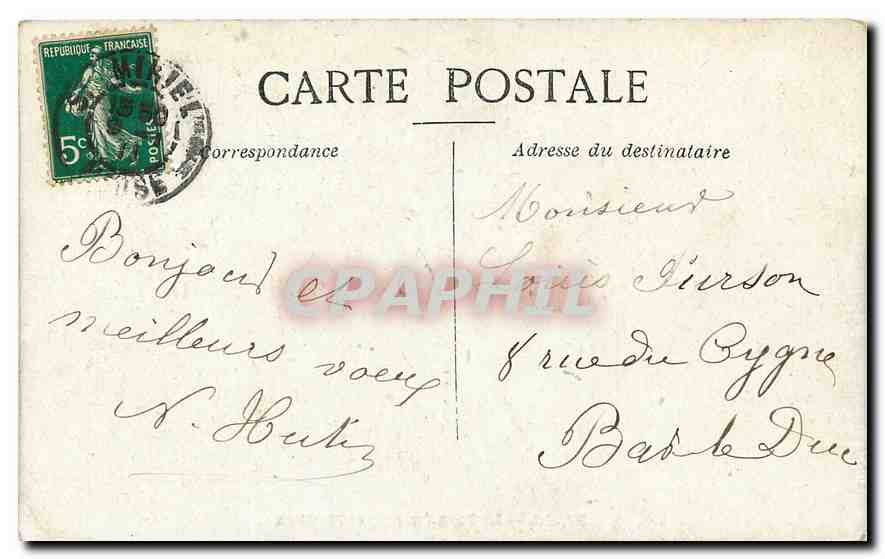 REPUBLIQUE FRANCAISE
5c
POSTES
MIHIEL
CARTE POSTALE
Correspondance
Adresse du destinataire
Bonjour et
meilleurs voeux
N. Hutin
Monsieur
Louis
8 rue du Cygne
Bar le Duc
CPAPHIL